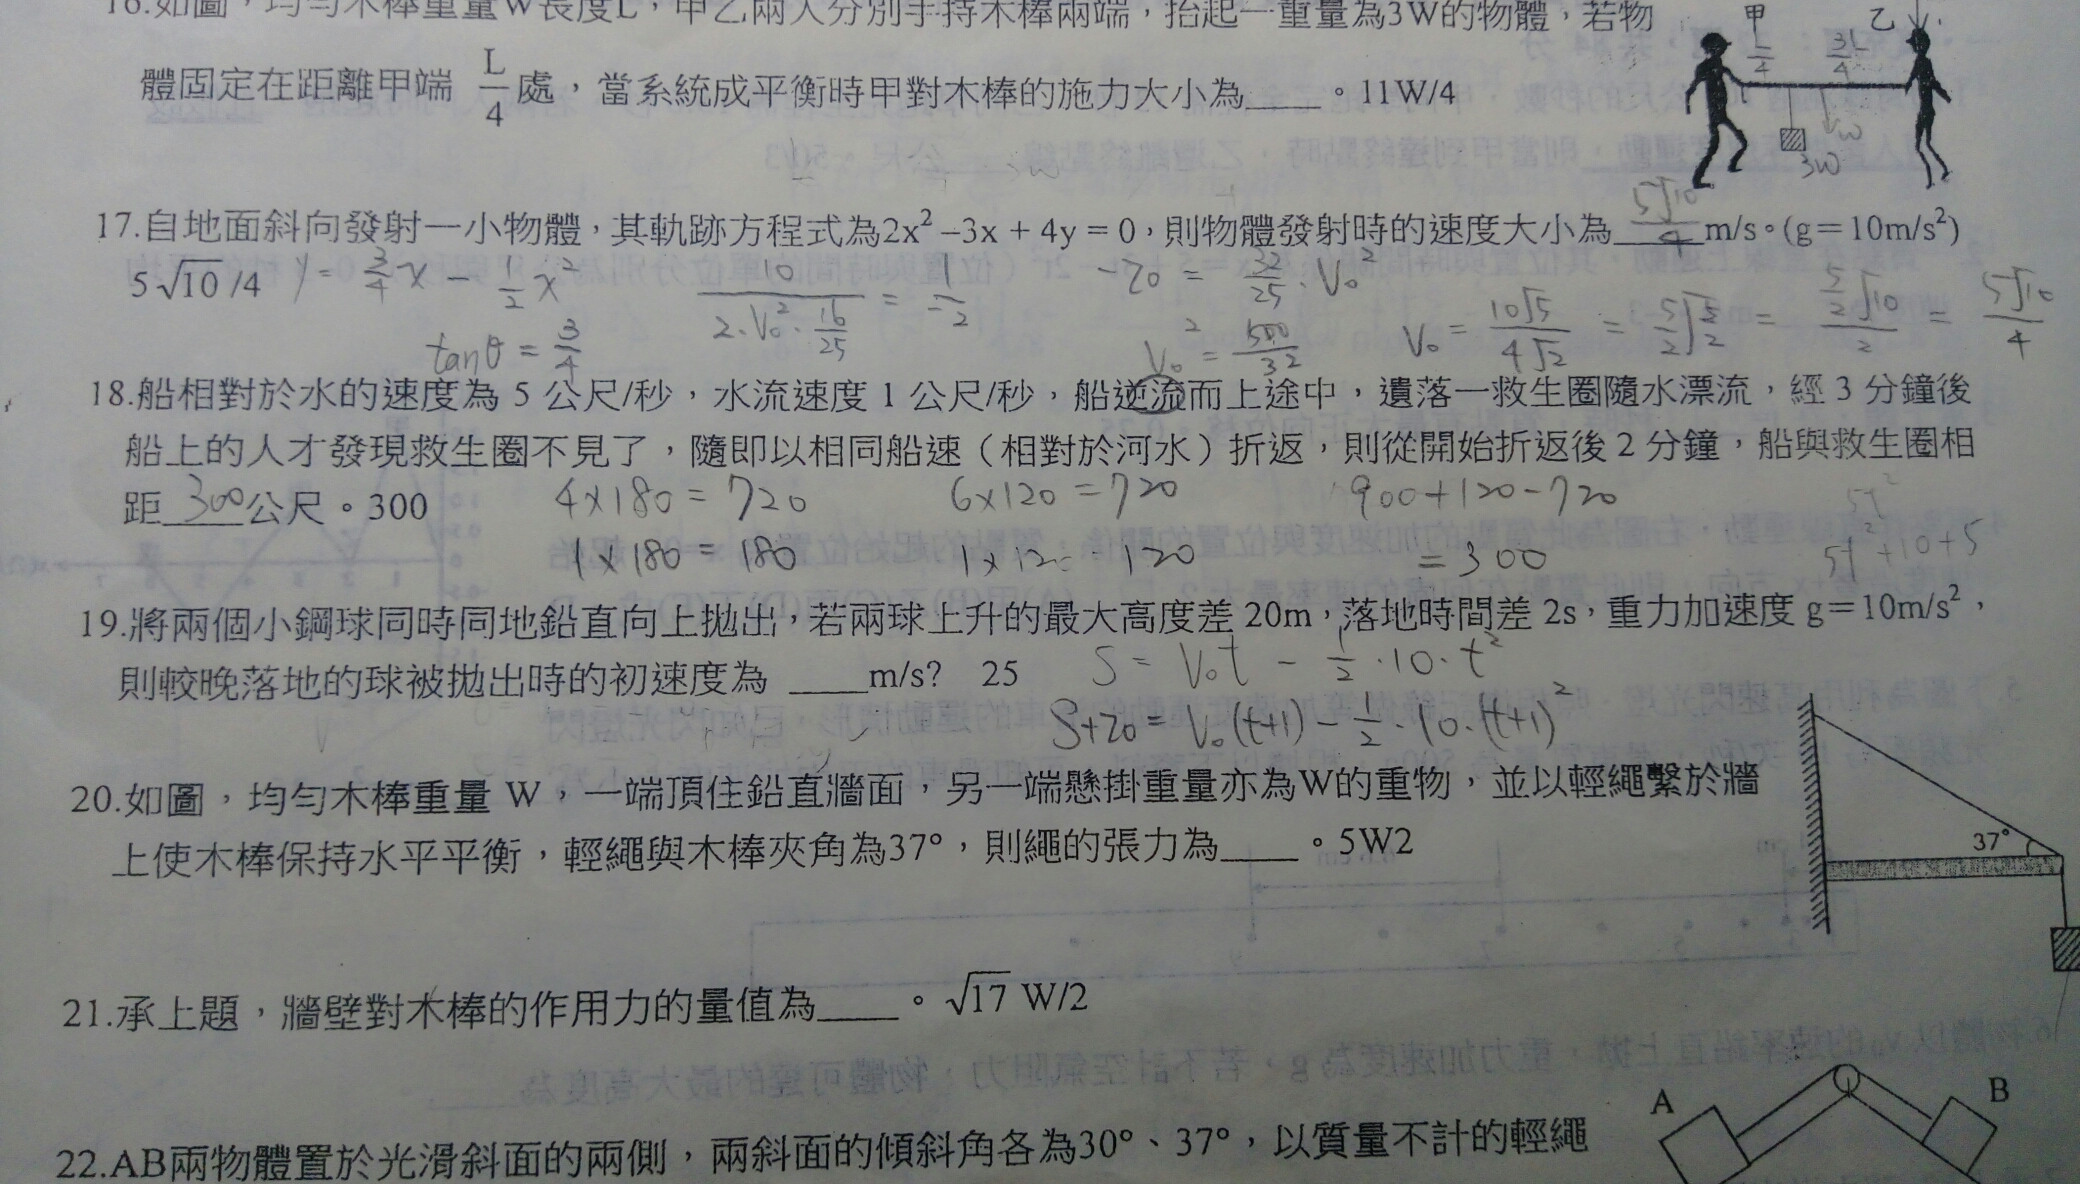 16.如圖，均勻木棒重量W長度L，甲乙兩人分別手持木棒兩端，抬起一重量為3W的物體，若物
體固定在距離甲端 L/4 處，當系統成平衡時甲對木棒的施力大小為____。11W/4
甲
乙
L/4
3L/4
W
3W
17.自地面斜向發射一小物體，其軌跡方程式為2x²–3x + 4y = 0，則物體發射時的速度大小為 5√10/4 m/s。(g＝10m/s²)
5√10 /4
y = 3/4 x - 1/2 x²
tanθ = 3/4
10/(2·V₀²·16/25) = 1/2
-20 = 32/25 · V₀²
V₀² = 500/32
V₀ = 10√5/4√2 = 5/2 √5/2 = 5/2√10/2 = 5√10/4
18.船相對於水的速度為 5 公尺/秒，水流速度 1 公尺/秒，船逆流而上途中，遺落一救生圈隨水漂流，經 3 分鐘後
船上的人才發現救生圈不見了，隨即以相同船速（相對於河水）折返，則從開始折返後 2 分鐘，船與救生圈相
距 300 公尺。300
4×180 = 720
6×120 = 720
900+120-720
1×180 = 180
1×12 = 120
= 300
5t²
5t²+10+5
19.將兩個小鋼球同時同地鉛直向上拋出，若兩球上升的最大高度差 20m，落地時間差 2s，重力加速度 g＝10m/s²，
則較晚落地的球被拋出時的初速度為 ____m/s? 25
S = V₀t - 1/2·10·t²
S+20 = V₀(t+1) - 1/2·10·(t+1)²
20.如圖，均勻木棒重量 W，一端頂住鉛直牆面，另一端懸掛重量亦為W的重物，並以輕繩繫於牆
上使木棒保持水平平衡，輕繩與木棒夾角為37°，則繩的張力為____。5W2
37°
21.承上題，牆壁對木棒的作用力的量值為____。√17 W/2
A
B
22.AB兩物體置於光滑斜面的兩側，兩斜面的傾斜角各為30°、37°，以質量不計的輕繩